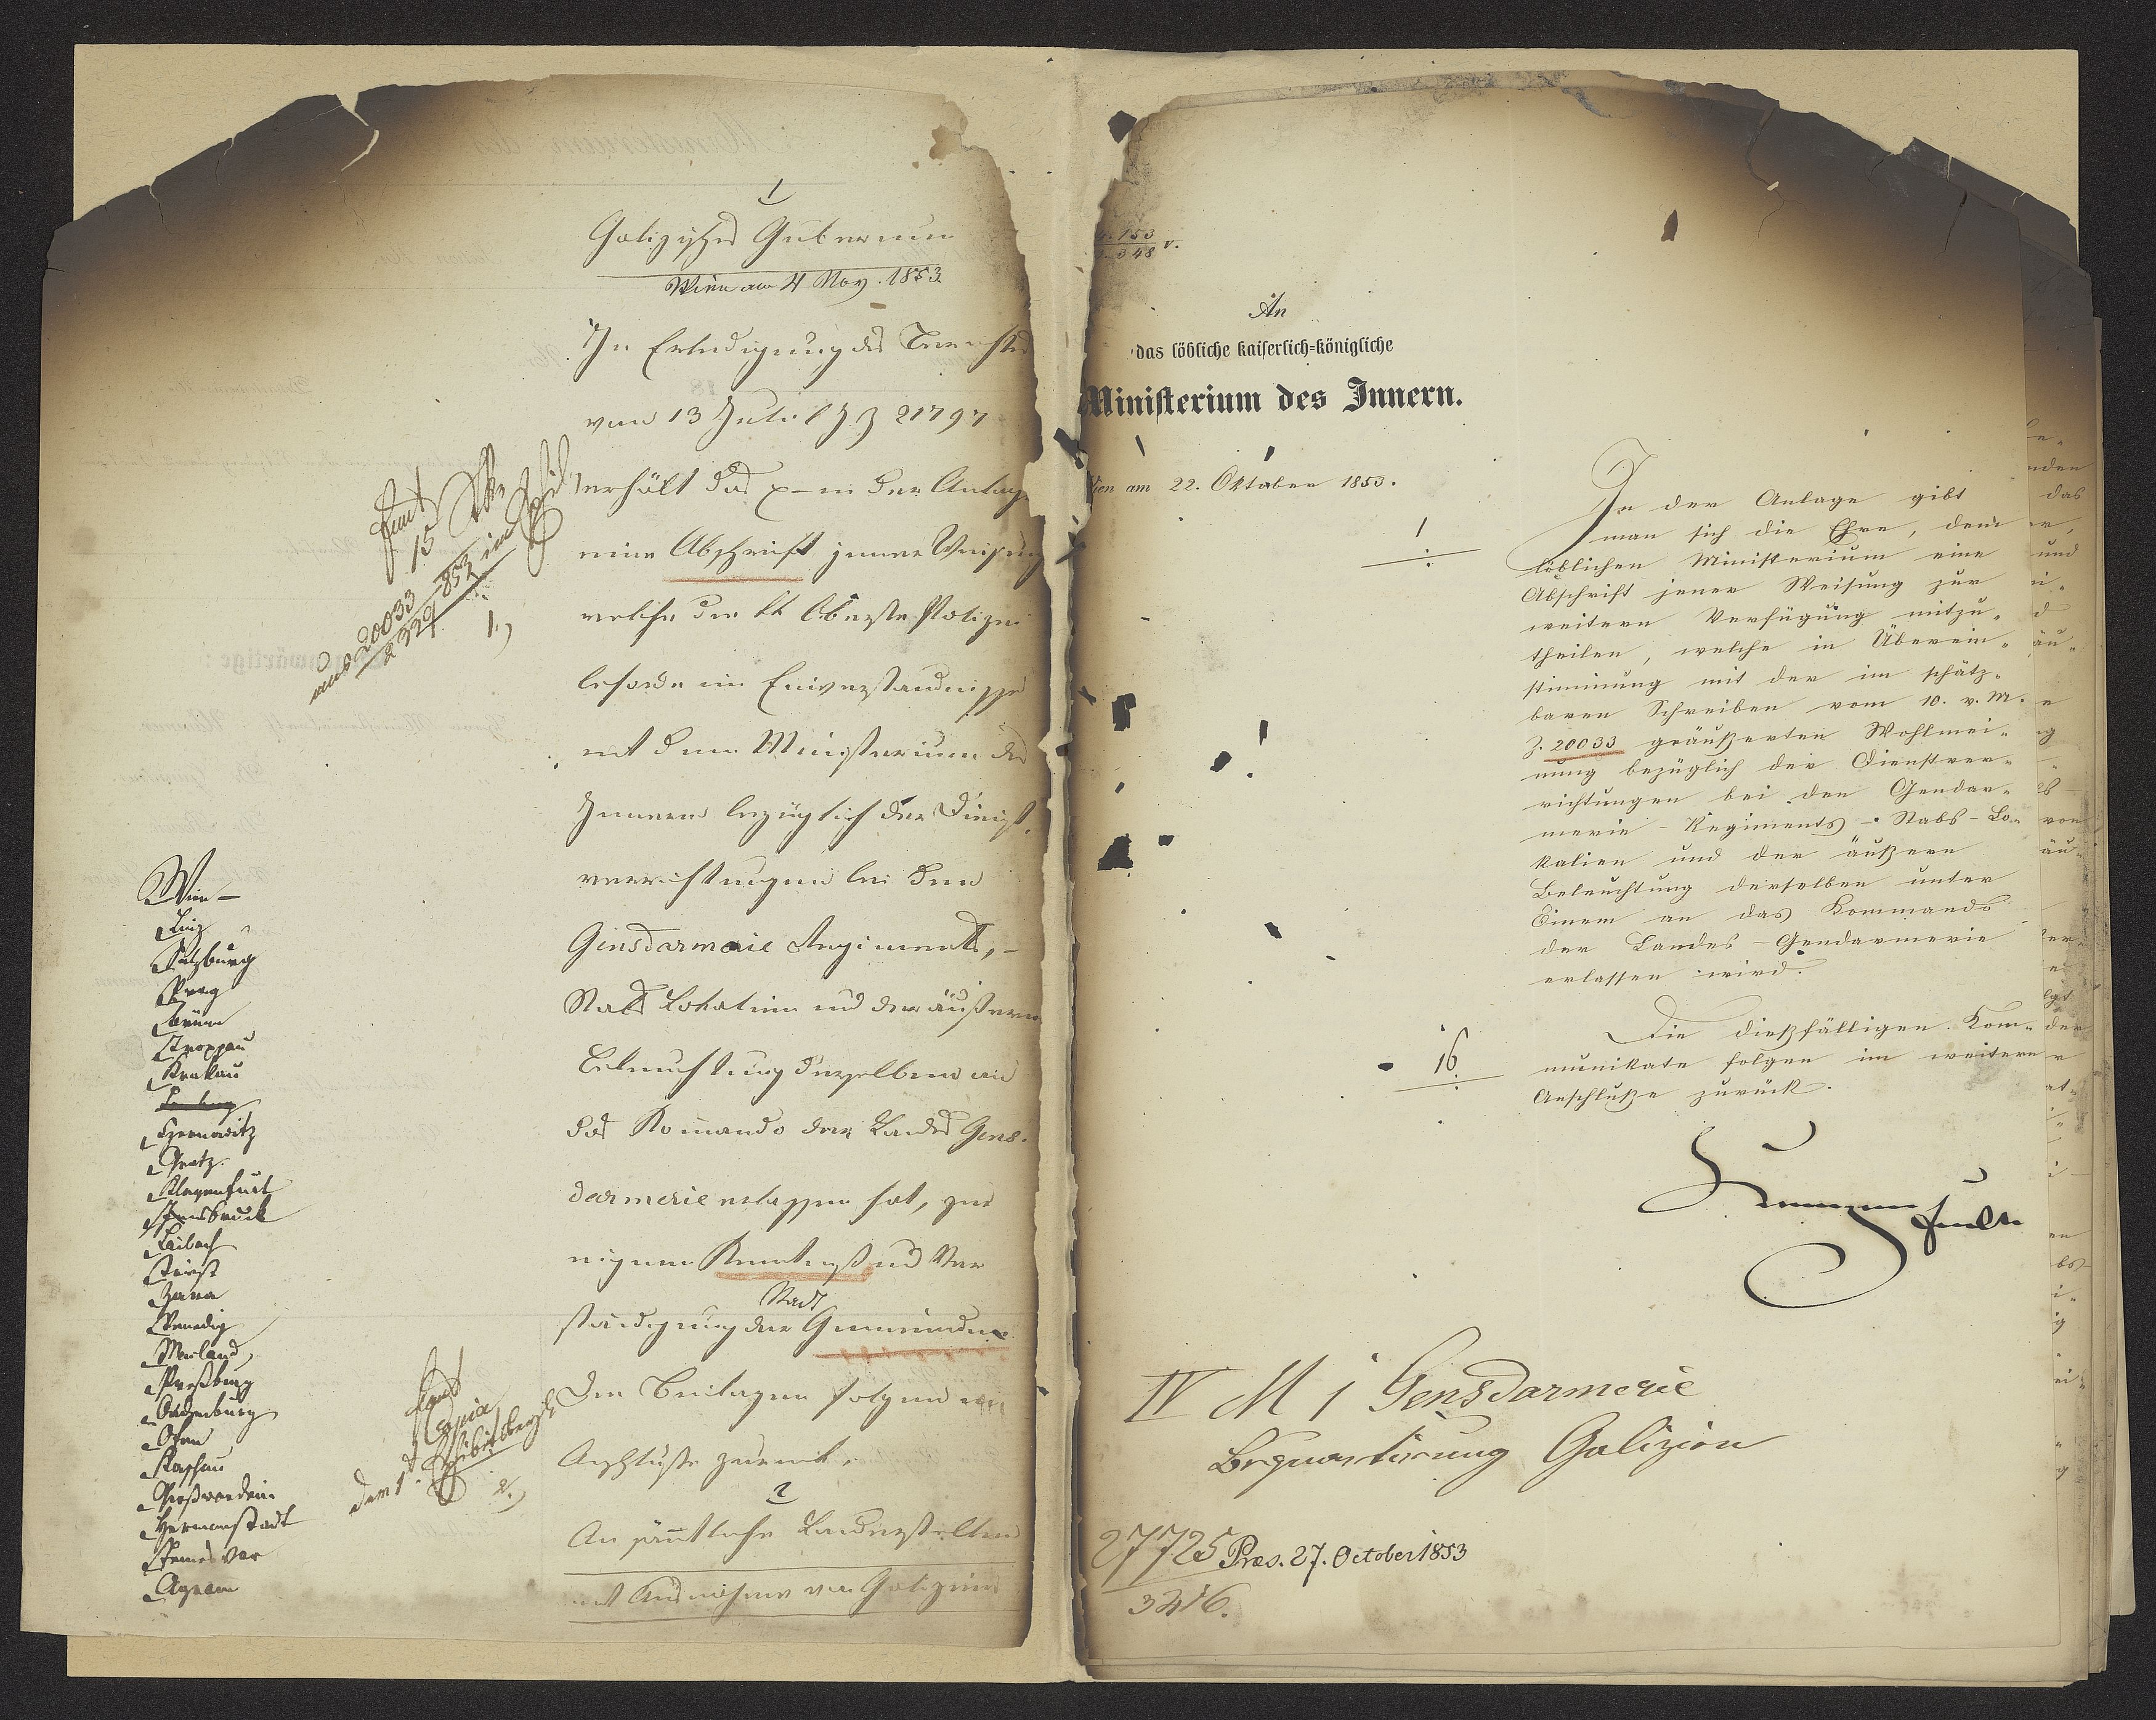 1
Galizisches Gubernium
Wien am 4 Nov. 1853
In Erledigung des Berichtes
vom 13 Juli l J Z 21797
erhält das x–m der Anlage
eine Abschrift jener Weisung
welche die kk Oberste Polizei
behörde im Einverständnisse
mit dem Ministerium des
Innern bezüglich der Dienst-
verrichtungen bei den
Gensdarmerie Regiments,-
Stabs Lokalien und der äußeren
Beleuchtung derselben an
das Kommando der Landes Gens-
darmerie erlassen hat, zur
eigenen Kenntniß und Ver
Stadt
ständigung der Gemeinden
Die Beilagen folgen im
Anschlusse zurück.
2
An sämtliche Länderstellen
mit Ausnahme von Galizien
15
20033
853
2339
1.)
Wien –
Linz
Salzburg
Prag
Brünn
Troppau
Krakau
Lemberg
Czernowitz
Gratz
Klagenfurt
Innsbruck
Laibach
Triest
Zara
Venedig
Mailand
Preßburg
Oedenburg
Ofen
Kaschau
Großwardein
Hermannstadt
Temesvar
Agram
Copia
dem 1
2.)
153
348 v.
An
das löbliche kaiserlich-königliche
Ministerium des Innern.
Wien am 22. Oktober 1853.
1
In der Anlage gibt
man sich die Ehre, dem
löblichen Ministerium eine
Abschrift jener Weisung zur
weitern Verfügung mitzu-
theilen, welche in Überein-
stimmung mit der im schätz-
baren Schreiben vom 10. v. M.
Z. 20033 geäußerten Wohlmei-
nung bezüglich der Dienstver-
richtungen bei den Gendar-
merie-Regiments-Stabs-Lo-
kalien und der äußern
Beleuchtung derselben unter
Einem an das Kommando
der Landes-Gendarmerie
erlassen wird.
16
Die dießfälligen Kom-
munikate folgen im weitern
Anschluße zurück.
Kempen
IV M 1 Gensdarmerie
Bequartirung Galizien
27725 Præs. 27. October 1853
3416.